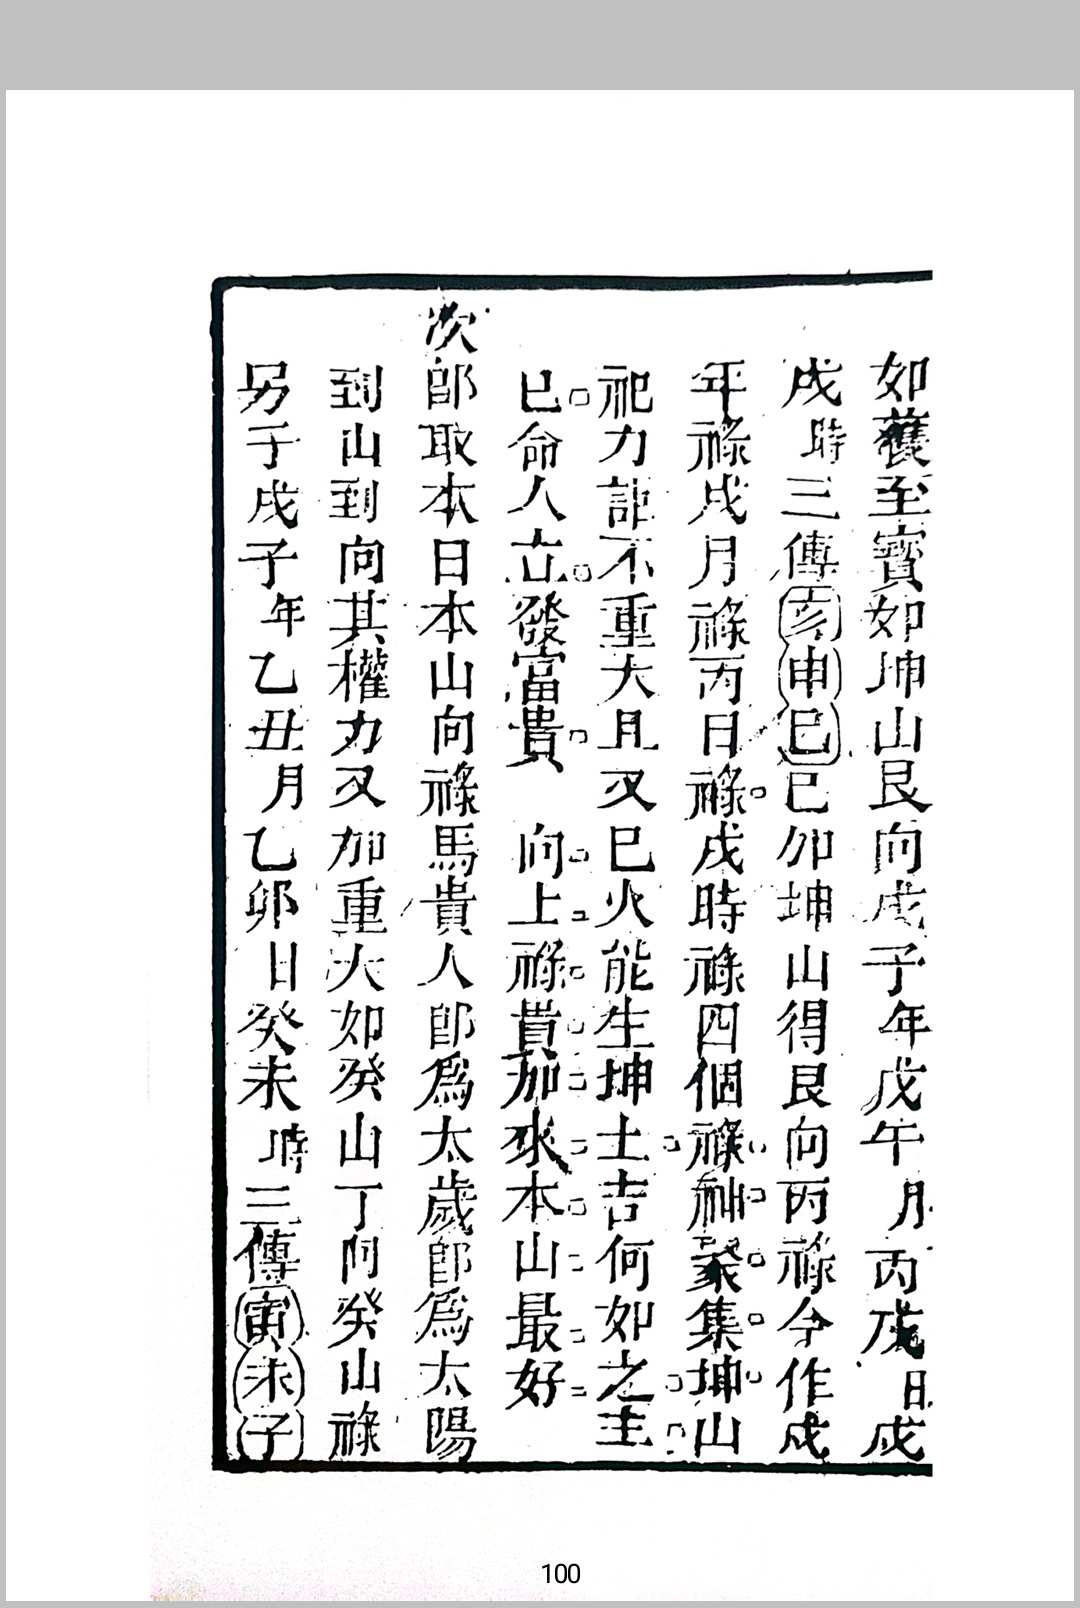 如獲至寶如坤山艮向戊子年戊午月丙戌日戊
戌時三傳亥申巳巳卯坤山得艮向丙祿今作戊
年祿戊月祿丙日祿戌時祿四個祿神聚集坤山
祀力詎不重大且又巳火能生坤土吉何如之主
巳命人立發富貴　向上祿貴加來本山最好
次郎取本日本山向祿馬貴人卽爲太歲卽爲太陽
到山到向其權力又加重大如癸山丁向癸山祿
另子戊子年乙丑月乙卯日癸未時三傳寅未子
100